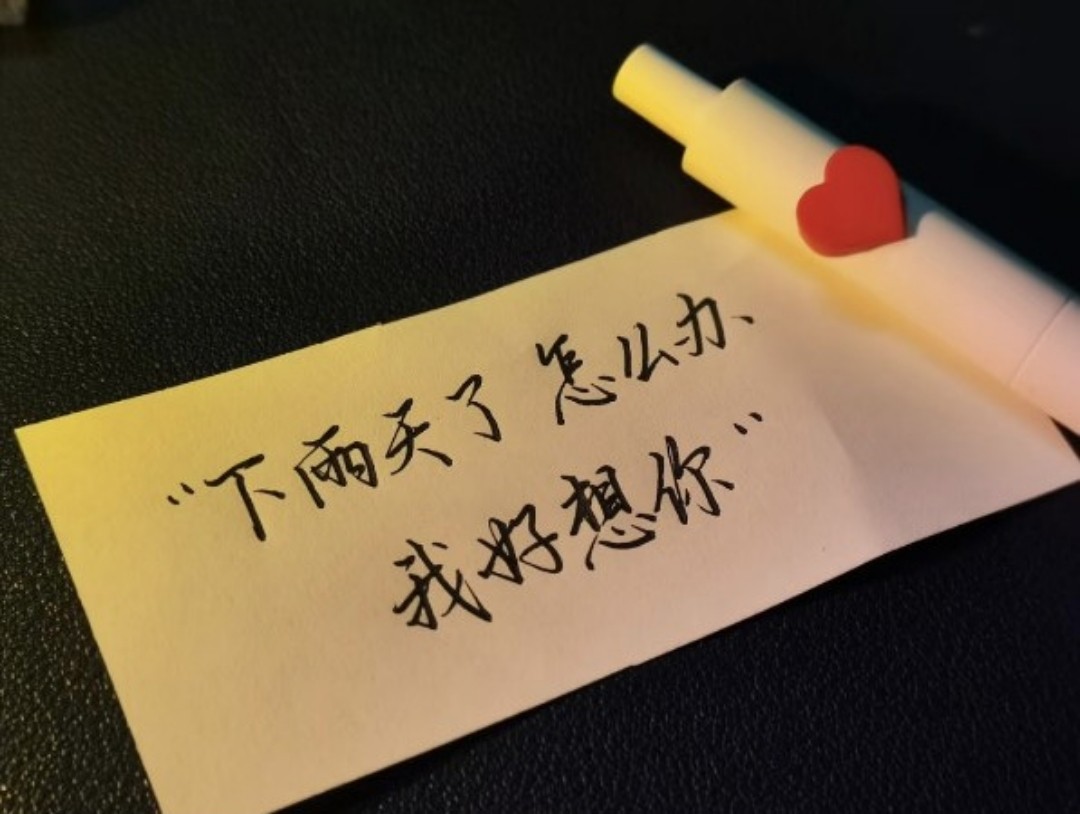 “下雨天了 怎么办
我好想你”